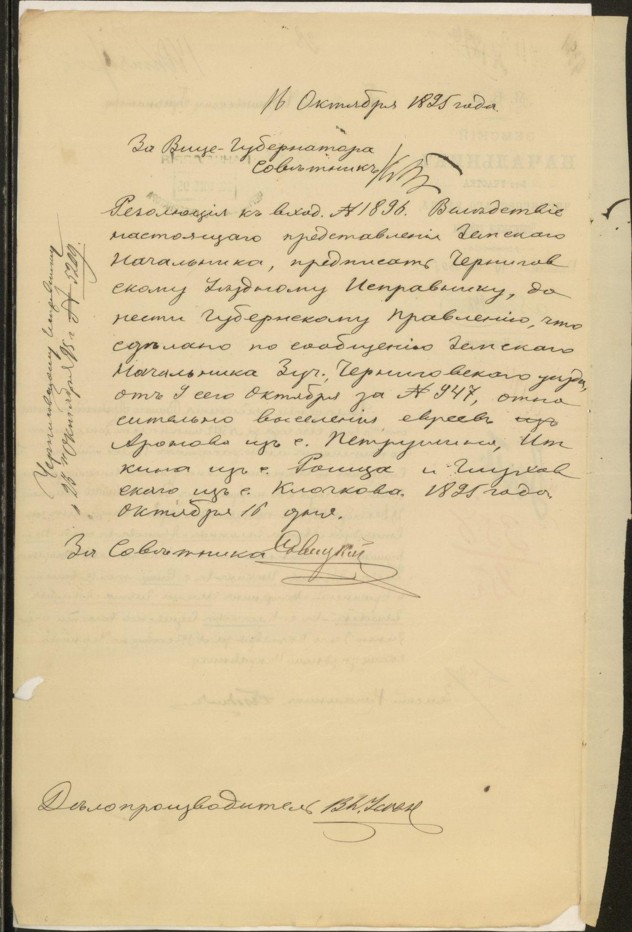 16 Октября 1895 года.
За Вице-Губернатора
Совѣтникъ
Резолюція къ вход. № 1896. Вслѣдствіе
настоящаго представленія Земскаго
Начальника, предписать Чернигов
скому Уѣздному Исправнику, до
нести Губернскому Правленію, что
сдѣлано по сообщенію Земскаго
Начальника 3 уч. Черниговскаго уѣзда,
отъ 9 сего Октября за № 947, отно
сительно выселенія евреевъ изъ
Аронова изъ с. Петрушина, Ит
кина изъ с. Роища и Глухов
скаго изъ с. Клочкова. 1895 года
Октября 16 дня.
За Совѣтника
Дѣлопроизводитель
Черниговскому Исправнику
25 Октября 95 г. № 5220.